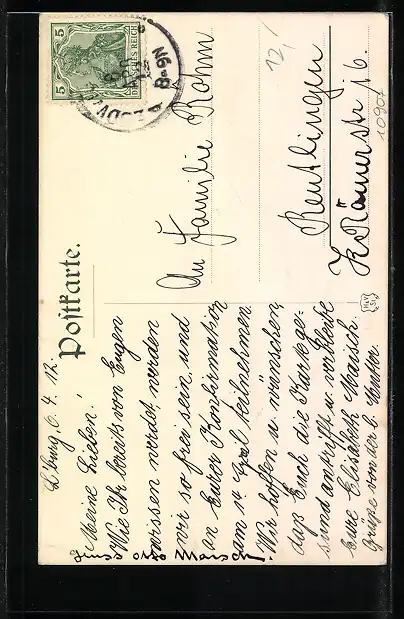 Postkarte.
5 5
DEUTSCHES REICH
8-9N
12/
An Familie Röhm
Reutlingen
Krämerstr. 16.
10907
L'burg, 6. 4. 12.
Meine Lieben!
Wie Ihr bereits von Eugen
wissen werdet, werden
wir so frei sein, und
an Eurer Konfirmation
am 14. April teilnehmen.
Wir hoffen u. wünschen,
daß Euch die Karte ge-
sund antrifft u. verbleibe
Eure Elisabeth Maisch.
Grüße von der l. Mutter.
Gruss Otto Maisch.